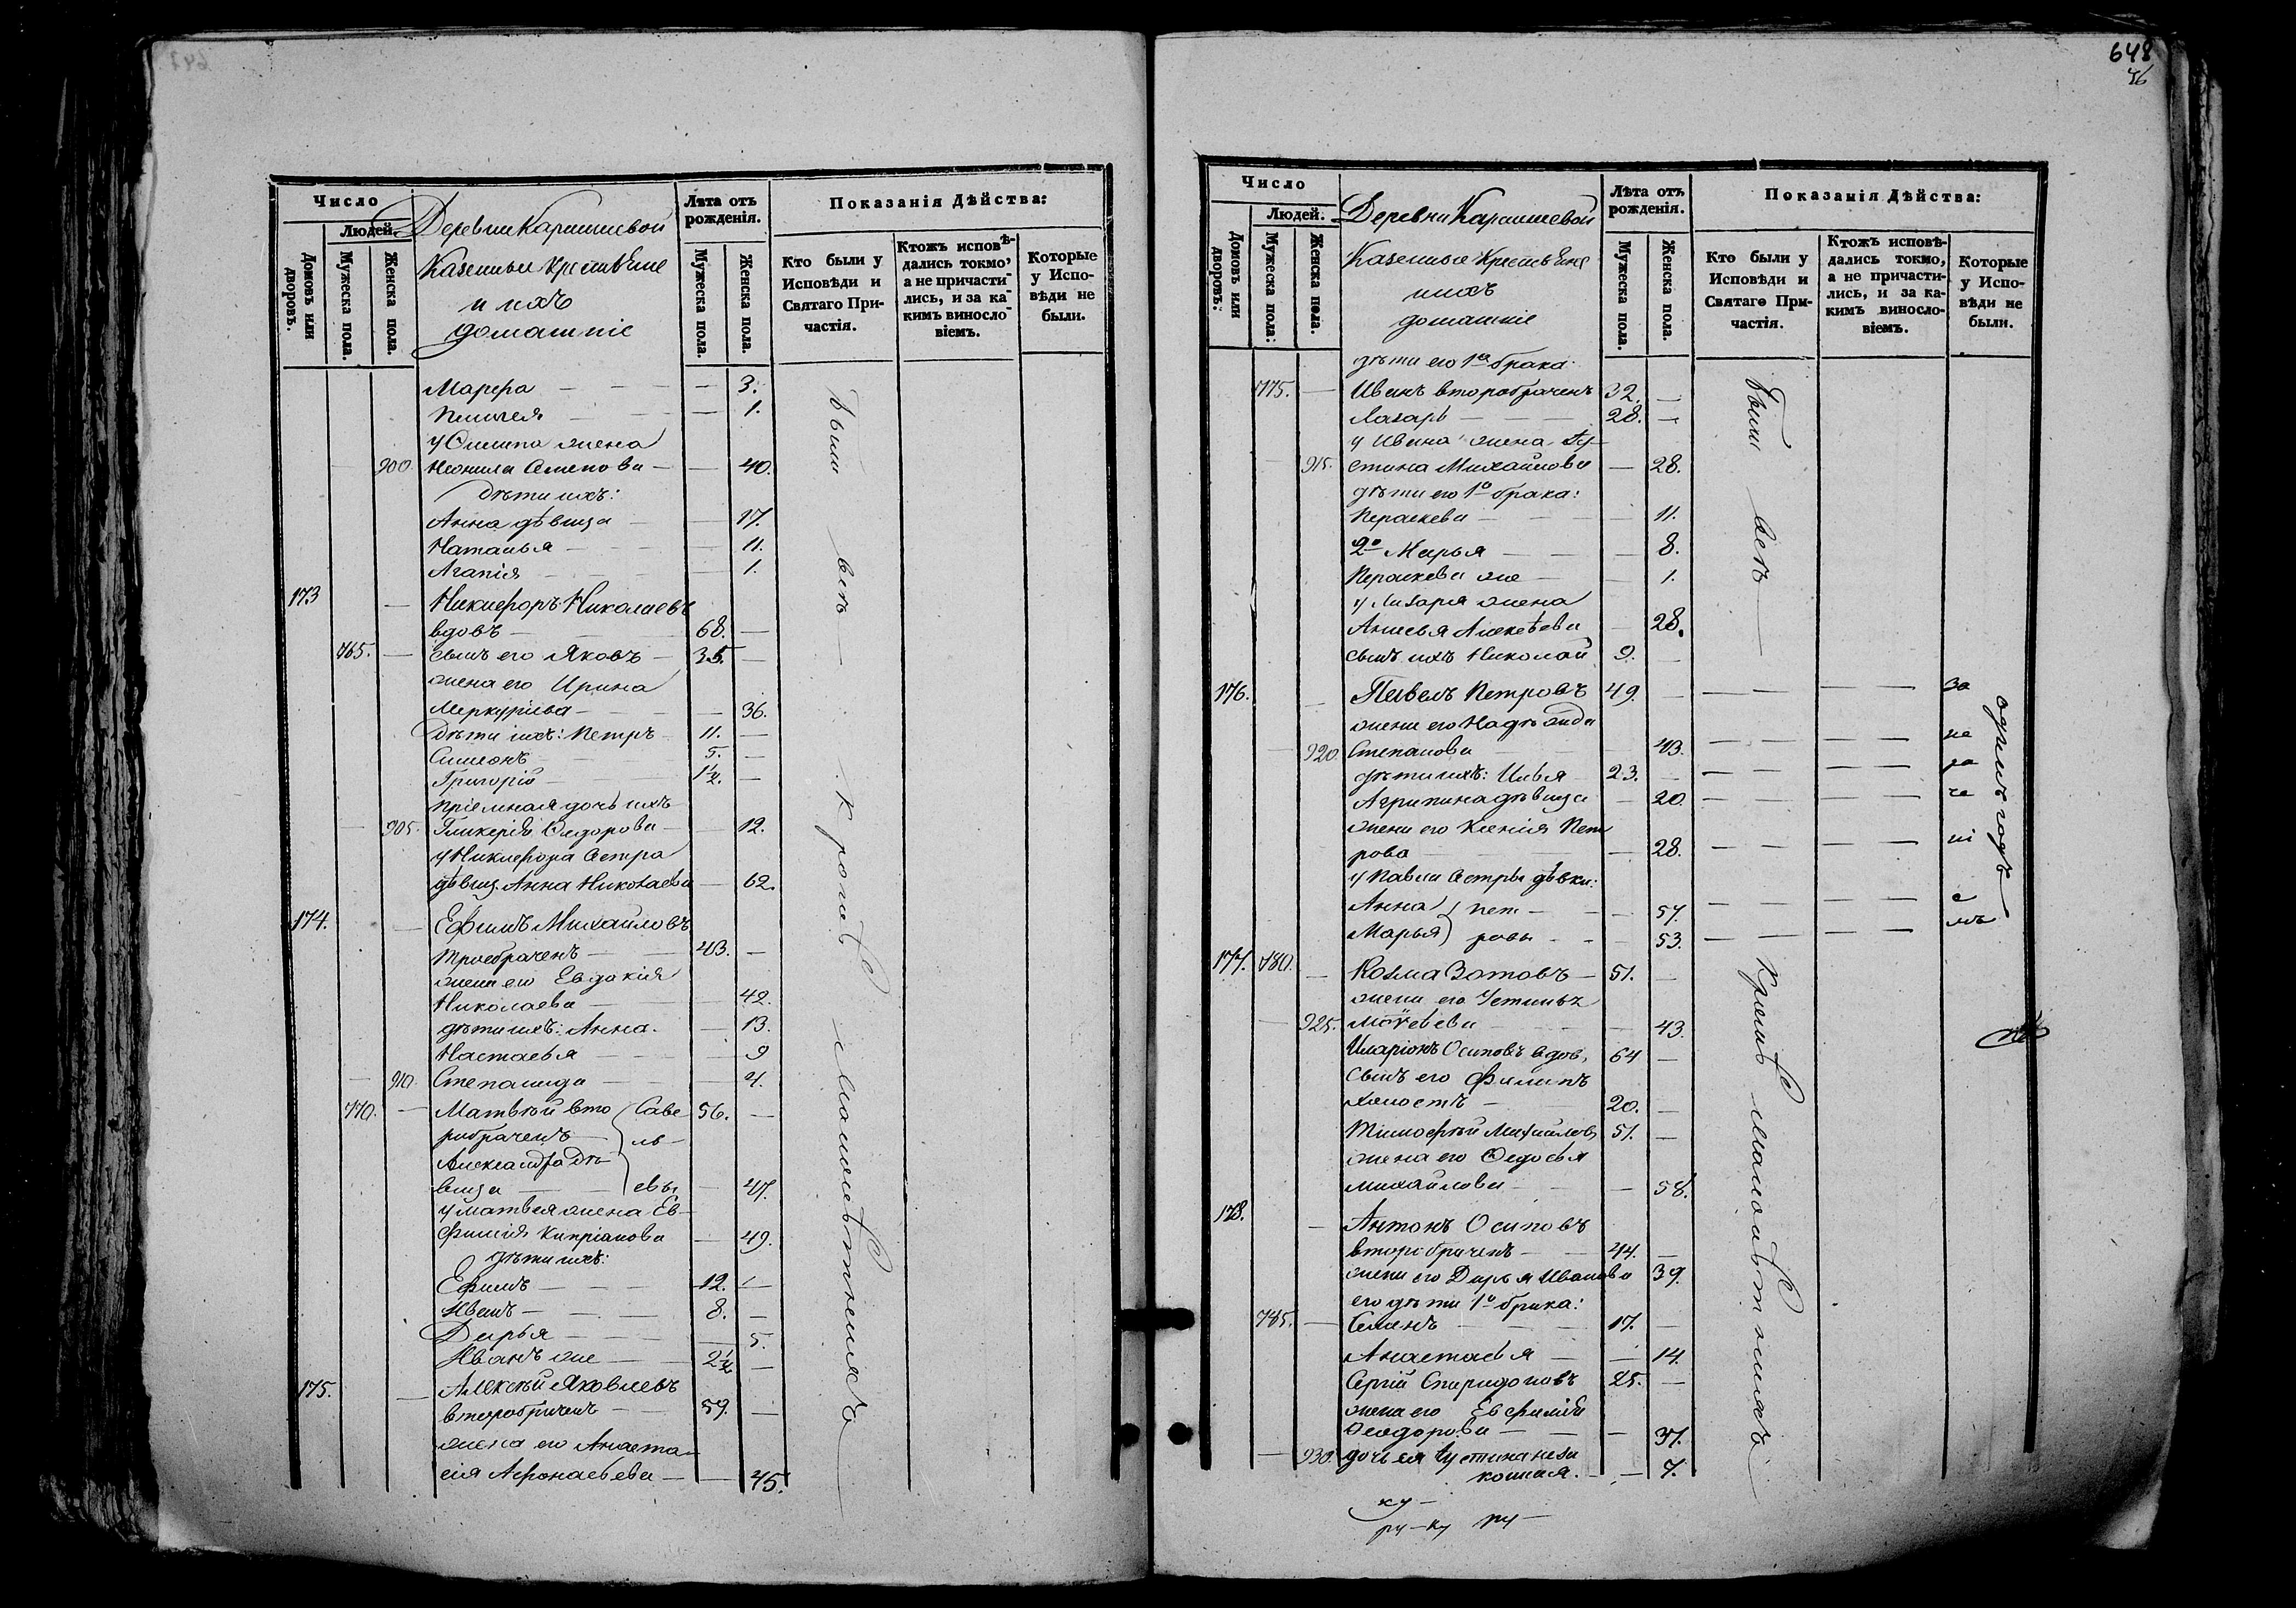 Число
Людей.
Домовъ или дворовъ.
Мужеска пола.
Женска пола.
Деревни Каришевой
Казенные крестьѣне
и ихъ
домашніе
Лѣта отъ рожденія.
Мужеска пола.
Женска пола.
Показанія Дѣйства:
Кто были у Исповѣди и Святаго Причастія.
Ктожъ исповѣдались токмо, а не причастились, и за какимъ винословіемъ.
Которые у Исповѣди не были.
Марфа — 3.
Пелагея — 1.
у Филипа жена
900. Неонила Семенова — 40.
дѣти ихъ:
Анна дѣвица — 17.
Наталья — 11.
Агапія — 1.
173 — Никифоръ Николаевъ
вдовъ — 68. —
765. — сынъ его Яковъ — 35. —
жена его Ирина
Меркуріева — 36.
Дѣти ихъ: Петръ 11. —
Симеонъ 5. —
Григорій 1½. —
пріемная дочь ихъ
905. Гликерія Федорова — 12.
у Никифора сестра
дѣвиц. Анна Николаева — 62.
174. — Ефимъ Михайловъ
троебраченъ — 43. —
жена его Евдокія
Николаева — 42.
дѣти ихъ: Анна. — 13.
Настасья — 9
910. Степанида — 4.
770. — Матвѣй вто Саве 56. —
робраченъ ль
Александра дѣ
вица евы — 47.
у Матвея жена Ев
фимія Кипріанова — 49.
дѣти ихъ:
Ефимъ — 12. —
Иванъ — 8. —
Дарья — 5.
Иванъ же — 2½ —
175. — Алексѣй Яковлевъ
второбраченъ — 59. —
жена его Анаста
сія Афонасьева — 45.
Были всѣ — кромѣ малолѣтнихъ
648
76
Число
Людей.
Домовъ или дворовъ:
Мужеска пола:
Женска пола.
Деревни Каришевой
Казенные Крестьѣне
и ихъ
домашніе
Лѣта отъ рожденія.
Мужеска пола.
Женска пола.
Показанія Дѣйства:
Кто были у Исповѣди и Святаго Причастія.
Ктожъ исповѣдались токмо, а не причастились, и за какимъ винословіемъ.
Которые у Исповѣди не были.
дѣти его 1го брака:
775. — Иванъ второбраченъ 32. —
Лазарь — 28. —
у Ивана жена Іу
915. стина Михайлова — 28.
дѣти его 1о брака:
Пераскева — 11.
2о Марья — 8.
Пераскева же — 1.
у Лазаря жена
Анисья Алексѣева — 28.
сынъ ихъ Николай 9. —
176. — Павелъ Петровъ 49. — за
жена его Надѣжда
920. Степанова — 43. не
дѣти ихъ: Илья 23. — ра
Агрипина дѣвица — 20. че
жена его Ксенія Пет
рова — 28. ні
у Павла сестры дѣвки:
Анна Пет — 57. е
Марья ровы — 53. мъ
одинъ годъ
177. 780. — Козма Зотовъ — 51. —
жена его Устинья
925. Матвѣева — 43.
Иларіонъ Осиповъ вдов. 64 —
сынъ его Филипъ
холостъ — 20. —
Тимофѣй Михайловъ 51. —
жена его Федосья
Михайлова — 58.
178. — Антонъ Осиповъ
второбраченъ — 44. —
жена его Дарья Иванова 39.
его дѣти 1о брака:
785. — Семенъ — 17. —
Анастасья — 14.
Сергій Спиридоновъ 25. —
жена его Евфимія
Феодорова — 37.
930. дочь ея Іустина неза
конная. — 7.
Были всѣ — кромѣ малолѣтнихъ
ку —
ру — ку ру —